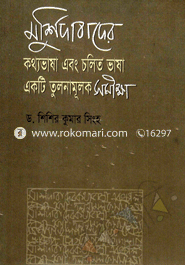 মুর্শিদাবাদের
কথ্যভাষা এবং চলিত ভাষা
একটি তুলনামূলক সমীক্ষা
ড. শিশির কুমার সিংহ
www.rokomari.com
16297